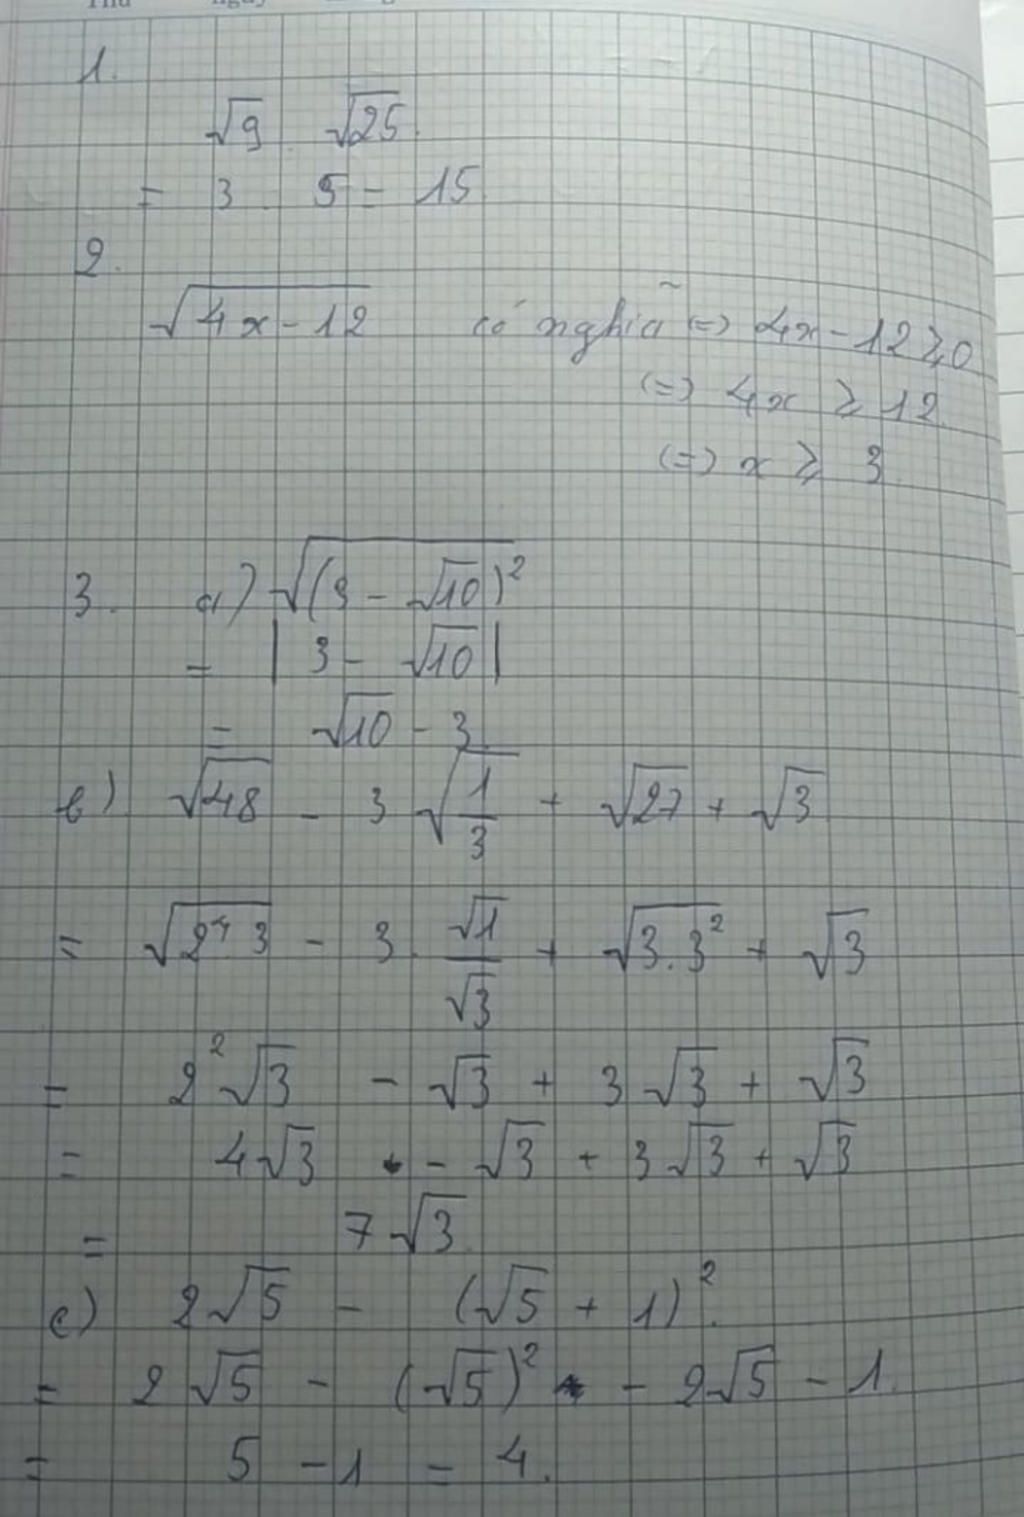 1.
√9 . √25.
= 3 . 5 = 15
2.
√(4x - 12) có nghĩa (=) 4x - 12 ≥ 0
(=) 4x ≥ 12
(=) x ≥ 3
3. a) √(3 - √10)²
= |3 - √10|
= √10 - 3
b) √48 - 3√(1/3) + √27 + √3
= √(2⁴ 3) - 3 . √1/√3 + √(3.3²) + √3
= 2²√3 - √3 + 3√3 + √3
= 4√3 - √3 + 3√3 + √3
= 7√3
c) 2√5 - (√5 + 1)².
= 2√5 - (√5)² - 2√5 - 1.
= 5 - 1 = 4.